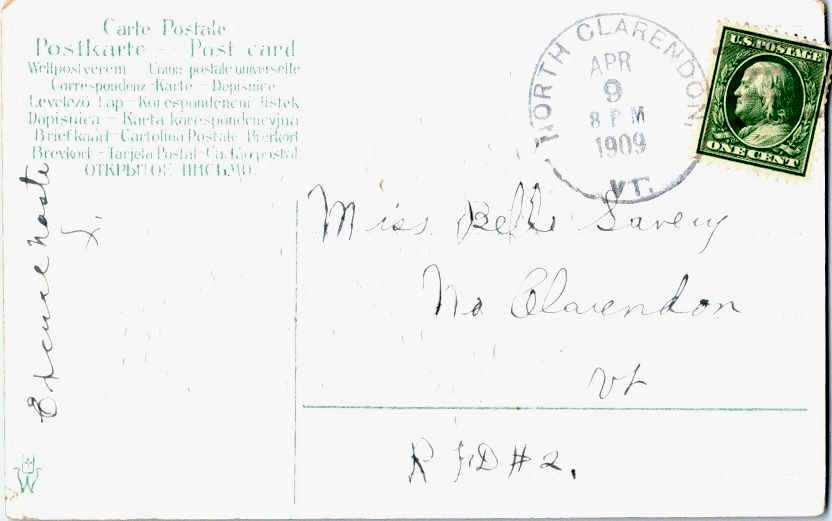 Carte Postale
Postkarte — Post card
Weltpostverein — Union postale universelle
Correspondenz-Karte — Dopisnice
Levelező Lap — Korespondencni listek
Dopisnica — Karta korespondencyjna
Briefkaart — Cartolina Postale Brefkort
Brevkort — Tarjeta Postal — Cartão postal
ОТКРЫТОЕ ПИСЬМО.
NORTH CLARENDON,
APR
9
8 PM
1909
VT.
U.S. POSTAGE
ONE CENT
Miss Belle Savery
No Clarendon
Vt
R F D # 2.
Excuse haste
W